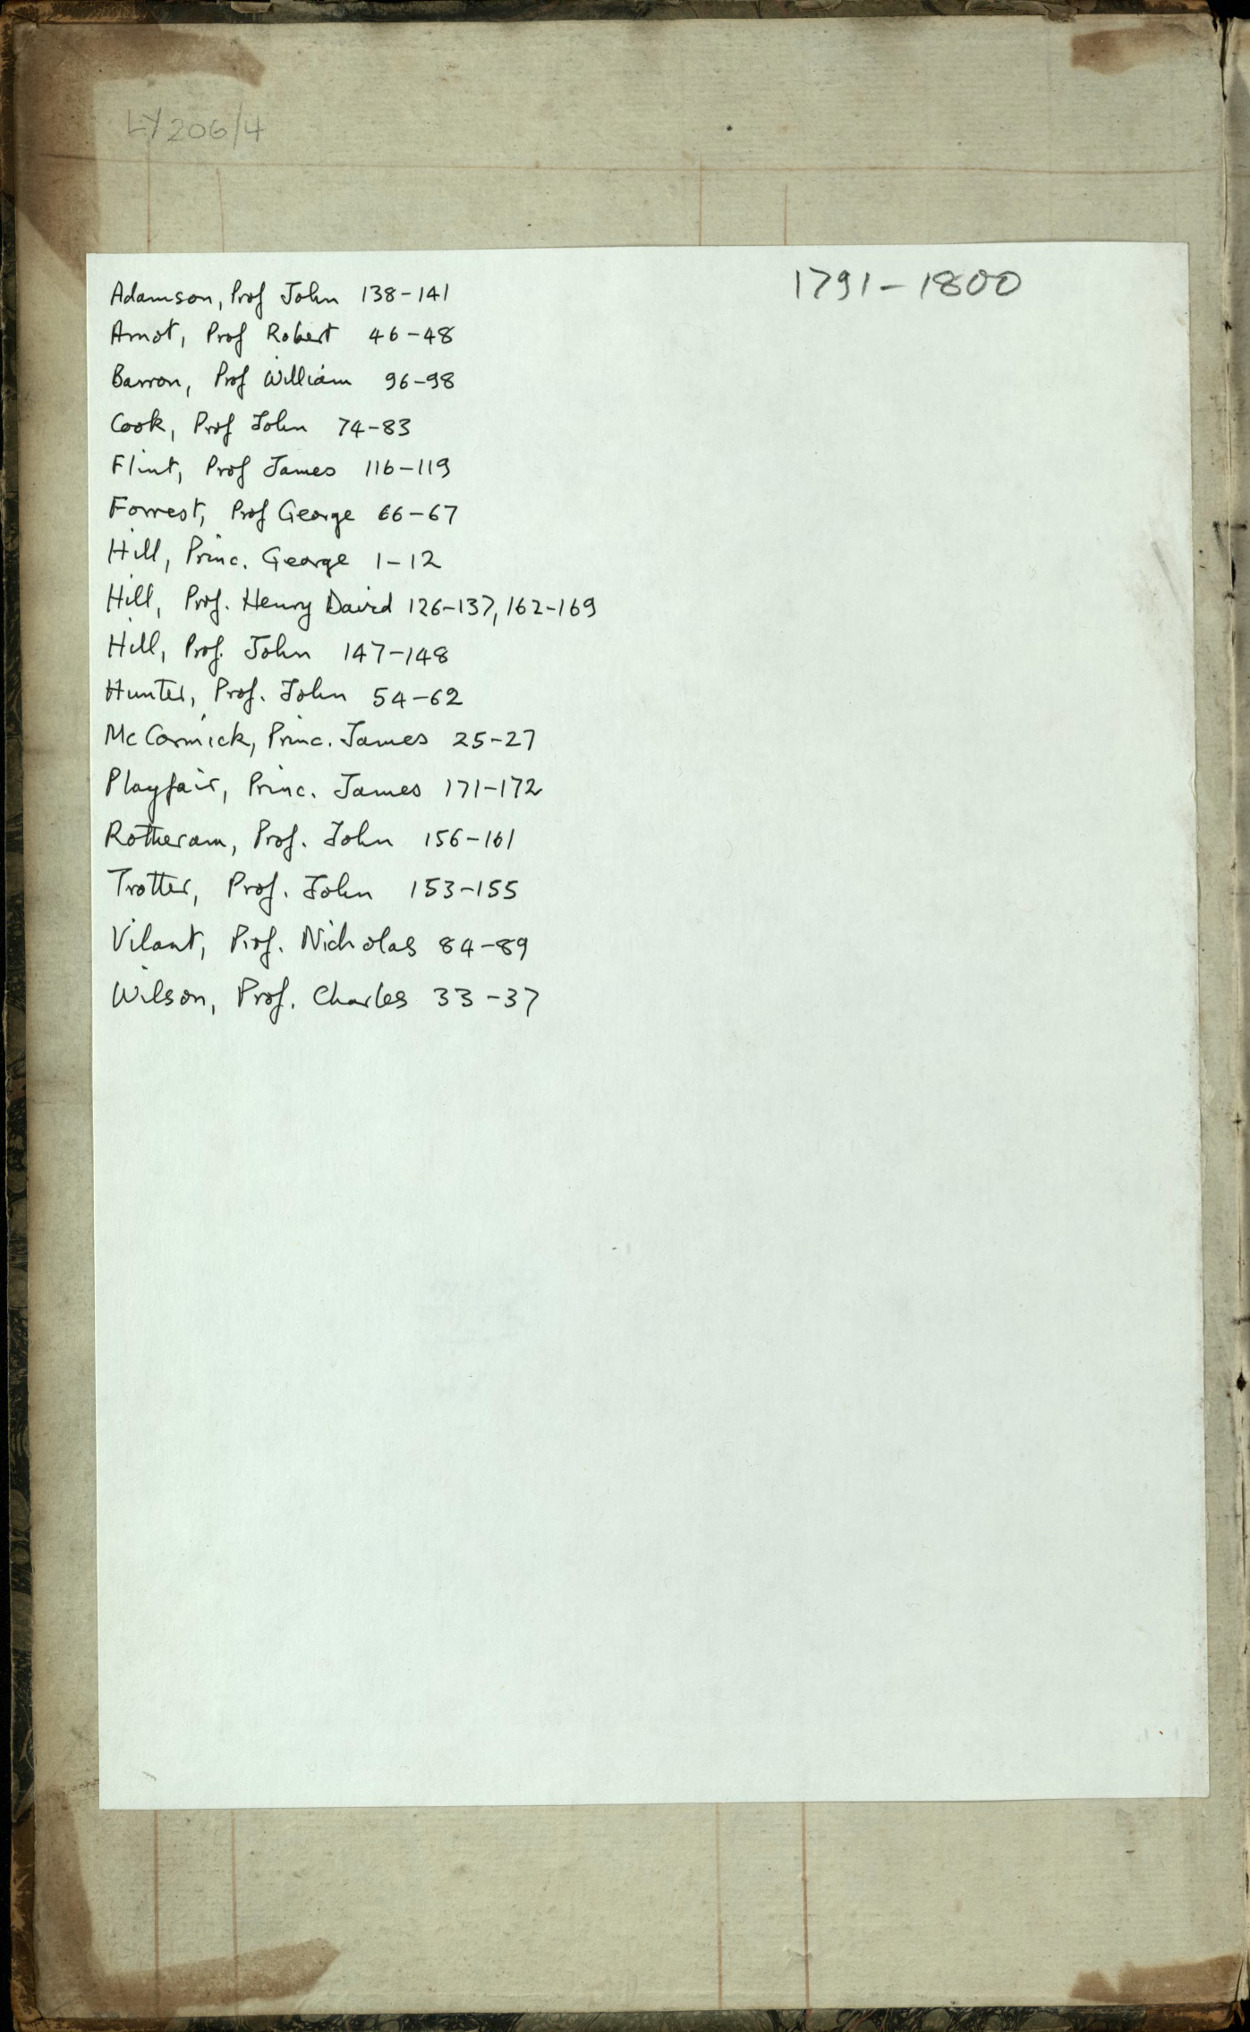 LY206/4
1791-1800
Adamson, Prof John 138-141
Arnot, Prof Robert 46-48
Barron, Prof William 96-98
Cook, Prof John 74-83
Flint, Prof James 116-119
Forrest, Prof George 66-67
Hill, Princ. George 1-12
Hill, Prof. Henry David 126-137, 162-169
Hill, Prof. John 147-148
Hunter, Prof. John 54-62
McCormick, Princ. James 25-27
Playfair, Princ. James 171-172
Rotheram, Prof. John 156-161
Trotter, Prof. John 153-155
Vilant, Prof. Nicholas 84-89
Wilson, Prof. Charles 33-37